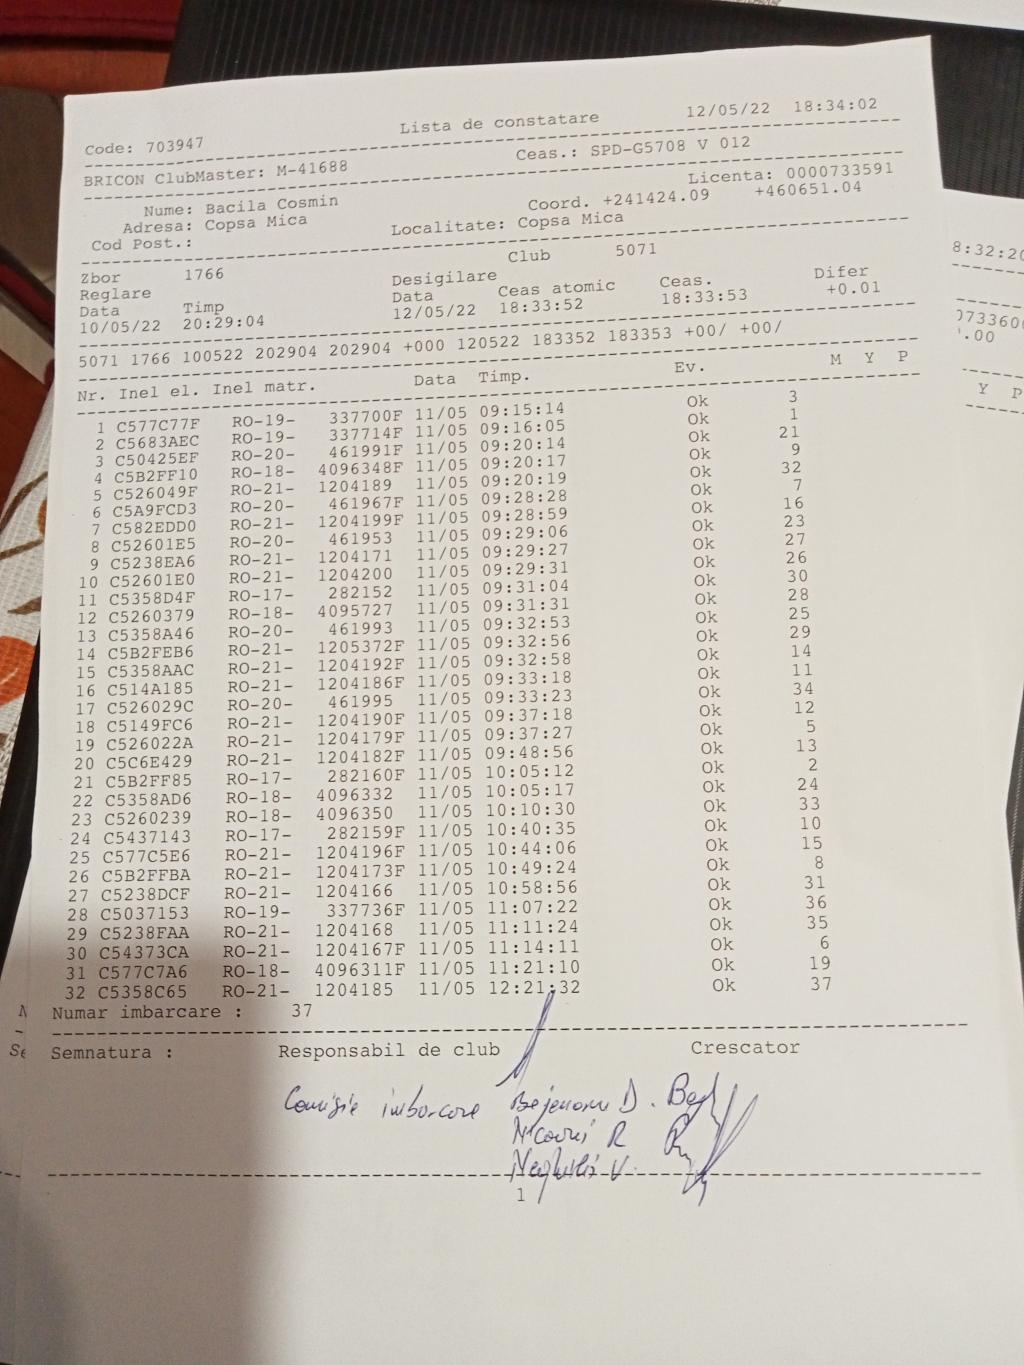 Code: 703947 Lista de constatare 12/05/22 18:34:02
BRICON ClubMaster: M-41688 Ceas.: SPD-G5708 V 012
Nume: Bacila Cosmin Licenta: 0000733591
Adresa: Copsa Mica Coord. +241424.09 +460651.04
Cod Post.: Localitate: Copsa Mica
Club 5071
Zbor 1766
Reglare Desigilare
Data Timp Data Ceas atomic Ceas. Difer
10/05/22 20:29:04 12/05/22 18:33:52 18:33:53 +0.01
5071 1766 100522 202904 202904 +000 120522 183352 183353 +00/ +00/
Nr. Inel el. Inel matr. Data Timp. Ev. M Y P
1 C577C77F RO-19- 337700F 11/05 09:15:14 Ok 3
2 C5683AEC RO-19- 337714F 11/05 09:16:05 Ok 1
3 C50425EF RO-20- 461991F 11/05 09:20:14 Ok 21
4 C5B2FF10 RO-18- 4096348F 11/05 09:20:17 Ok 9
5 C526049F RO-21- 1204189 11/05 09:20:19 Ok 32
6 C5A9FCD3 RO-20- 461967F 11/05 09:28:28 Ok 7
7 C582EDD0 RO-21- 1204199F 11/05 09:28:59 Ok 16
8 C52601E5 RO-20- 461953 11/05 09:29:06 Ok 23
9 C5238EA6 RO-21- 1204171 11/05 09:29:27 Ok 27
10 C52601E0 RO-21- 1204200 11/05 09:29:31 Ok 26
11 C5358D4F RO-17- 282152 11/05 09:31:04 Ok 30
12 C5260379 RO-18- 4095727 11/05 09:31:31 Ok 28
13 C5358A46 RO-20- 461993 11/05 09:32:53 Ok 25
14 C5B2FEB6 RO-21- 1205372F 11/05 09:32:56 Ok 29
15 C5358AAC RO-21- 1204192F 11/05 09:32:58 Ok 14
16 C514A185 RO-21- 1204186F 11/05 09:33:18 Ok 11
17 C526029C RO-20- 461995 11/05 09:33:23 Ok 34
18 C5149FC6 RO-21- 1204190F 11/05 09:37:18 Ok 12
19 C526022A RO-21- 1204179F 11/05 09:37:27 Ok 5
20 C5C6E429 RO-21- 1204182F 11/05 09:48:56 Ok 13
21 C5B2FF85 RO-17- 282160F 11/05 10:05:12 Ok 2
22 C5358AD6 RO-18- 4096332 11/05 10:05:17 Ok 24
23 C5260239 RO-18- 4096350 11/05 10:10:30 Ok 33
24 C5437143 RO-17- 282159F 11/05 10:40:35 Ok 10
25 C577C5E6 RO-21- 1204196F 11/05 10:44:06 Ok 15
26 C5B2FFBA RO-21- 1204173F 11/05 10:49:24 Ok 8
27 C5238DCF RO-21- 1204166 11/05 10:58:56 Ok 31
28 C5037153 RO-19- 337736F 11/05 11:07:22 Ok 36
29 C5238FAA RO-21- 1204168 11/05 11:11:24 Ok 35
30 C54373CA RO-21- 1204167F 11/05 11:14:11 Ok 6
31 C577C7A6 RO-18- 4096311F 11/05 11:21:10 Ok 19
32 C5358C65 RO-21- 1204185 11/05 12:21:32 Ok 37
Numar imbarcare : 37
Semnatura : Responsabil de club Crescator
Comisie imbarcare Bejenaru D.
R
V.
1
8:32:20
.00
Y P